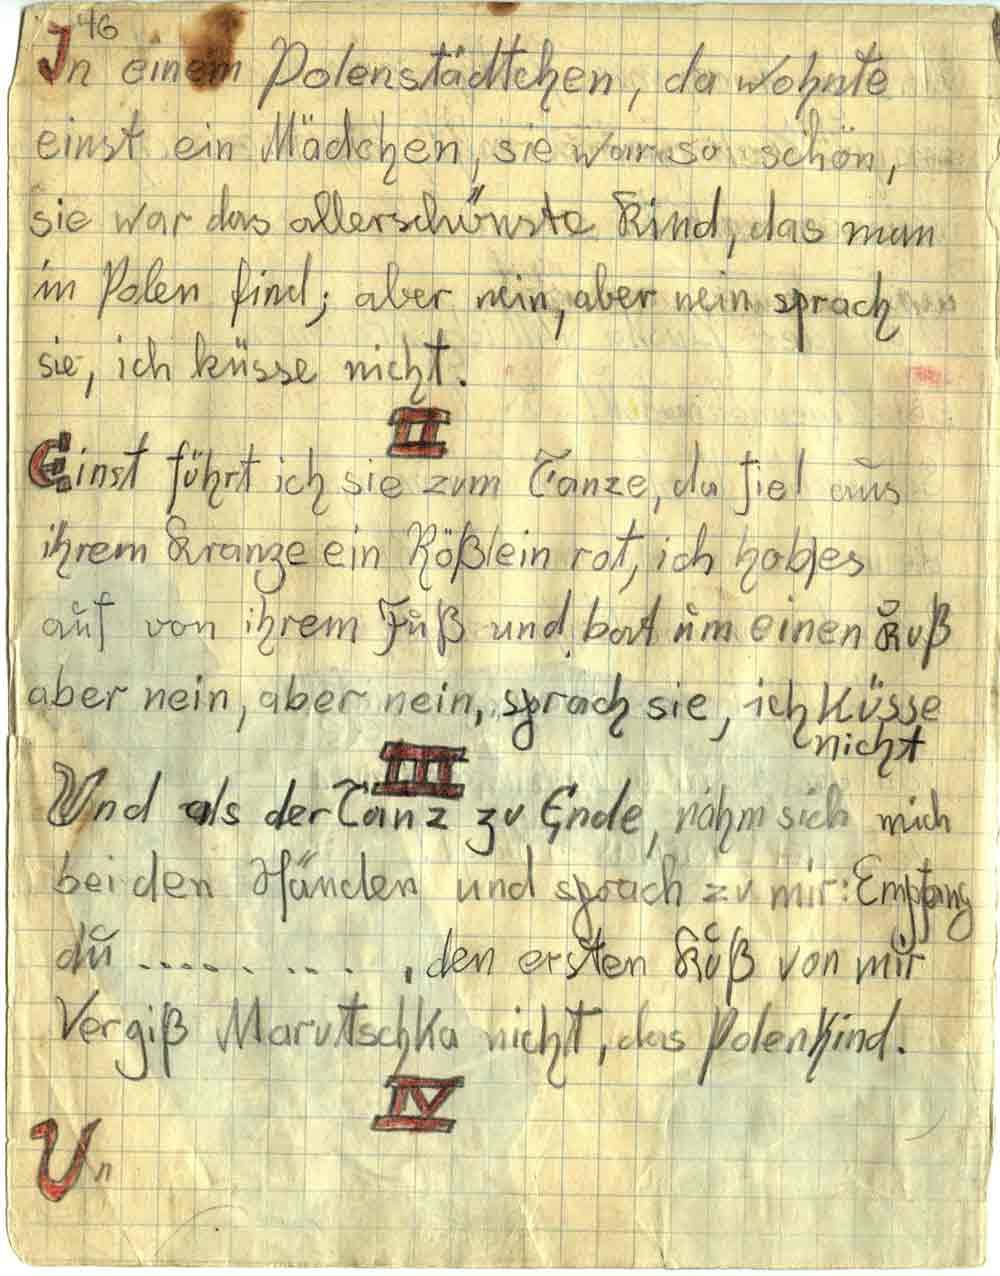 46
In einem Polenstädtchen, da wohnte
einst ein Mädchen, sie war so schön,
sie war das allerschönste Kind, das man
in Polen find; aber nein, aber nein sprach
sie, ich küsse nicht.
II
Einst führt ich sie zum Tanze, da fiel aus
ihrem Kranze ein Rößlein rot, ich hob es
auf von ihrem Fuß und bat um einen Kuß
aber nein, aber nein, sprach sie, ich Küsse
nicht
III
Und als der Tanz zu Ende, nahm sich mich
bei den Händen und sprach zu mir: Empfang
du .......... , den ersten Kuß von mir
Vergiß Marutschka nicht, das Polenkind.
IV
Un